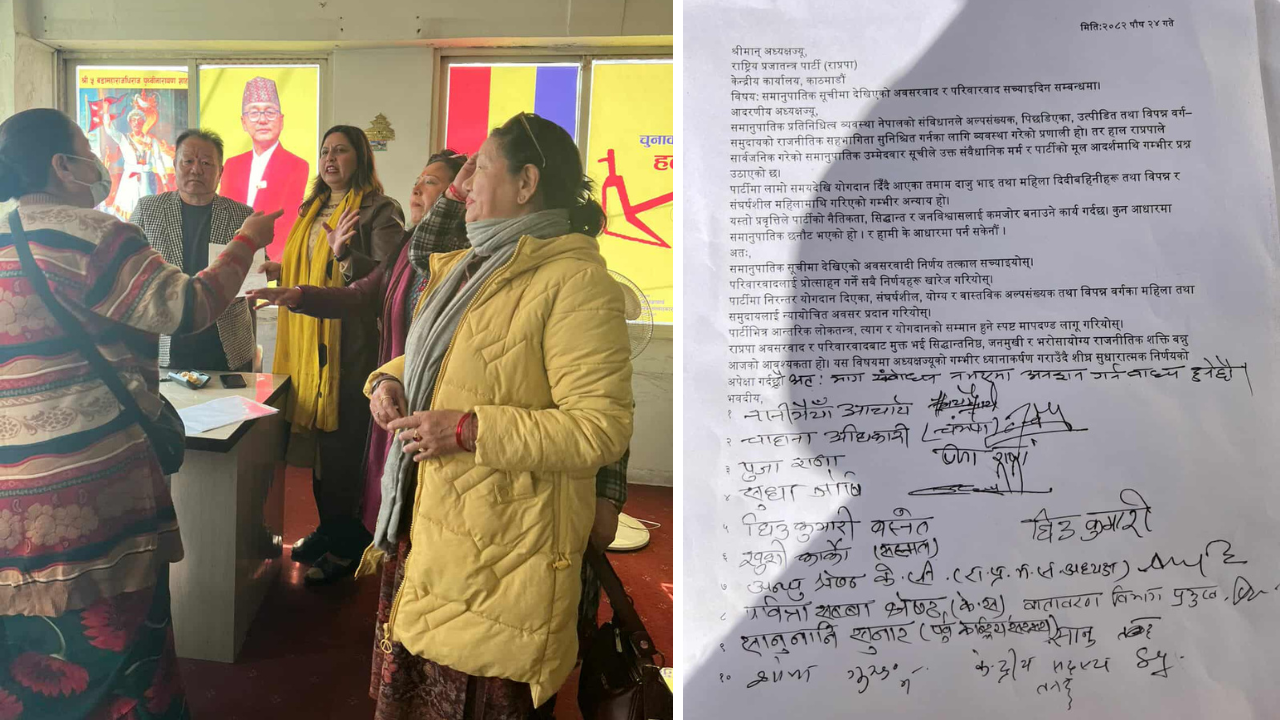 श्री ५ बडामहाराजधिराज पृथ्वीनारायण शाह
चुनाव
हल
मिति:२०८२ पौष २४ गते
श्रीमान् अध्यक्षज्यू,
राष्ट्रिय प्रजातन्त्र पार्टी (राप्रपा)
केन्द्रीय कार्यालय, काठमाडौं
विषय: समानुपातिक सूचीमा देखिएको अवसरवाद र परिवारवाद सच्याइदिन सम्बन्धमा।
आदरणीय अध्यक्षज्यू,
समानुपातिक प्रतिनिधित्व व्यवस्था नेपालको संविधानले अल्पसंख्यक, पिछडिएका, उत्पीडित तथा विपन्न वर्ग–
समुदायको राजनीतिक सहभागिता सुनिश्चित गर्नका लागि व्यवस्था गरेको प्रणाली हो। तर हाल राप्रपाले
सार्वजनिक गरेको समानुपातिक उम्मेदवार सूचीले उक्त संवैधानिक मर्म र पार्टीको मूल आदर्शमाथि गम्भीर प्रश्न
उठाएको छ।
पार्टीमा लामो समयदेखि योगदान दिँदै आएका तमाम दाजु भाइ तथा महिला दिदीबहिनीहरू तथा विपन्न र
संघर्षशील महिलामाथि गरिएको गम्भीर अन्याय हो।
यस्तो प्रवृत्तिले पार्टीको नैतिकता, सिद्धान्त र जनविश्वासलाई कमजोर बनाउने कार्य गर्दछ। कुन आधारमा
समानुपातिक छनौट भएको हो । र हामी के आधारमा पर्न सकेनौं ।
अतः,
समानुपातिक सूचीमा देखिएको अवसरवादी निर्णय तत्काल सच्याइयोस्।
परिवारवादलाई प्रोत्साहन गर्ने सबै निर्णयहरू खारेज गरियोस्।
पार्टीमा निरन्तर योगदान दिएका, संघर्षशील, योग्य र वास्तविक अल्पसंख्यक तथा विपन्न वर्गका महिला तथा
समुदायलाई न्यायोचित अवसर प्रदान गरियोस्।
पार्टीभित्र आन्तरिक लोकतन्त्र, त्याग र योगदानको सम्मान हुने स्पष्ट मापदण्ड लागू गरियोस्।
राप्रपा अवसरवाद र परिवारवादबाट मुक्त भई सिद्धान्तनिष्ठ, जनमुखी र भरोसायोग्य राजनीतिक शक्ति बन्नु
आजको आवश्यकता हो। यस विषयमा अध्यक्षज्यूको गम्भीर ध्यानाकर्षण गराउँदै शीघ्र सुधारात्मक निर्णयको
अपेक्षा गर्दछौं अतः माग संबोधन नभएमा अनशन गर्न बाध्य हुनेछौं।
भवदीय,
१ नानीमैयाँ आचार्य
२ चाहना अधिकारी (चम्पा)
३ पुजा राना पुजा राना
४ सुधा जोशी
५ घिउकुमारी बस्नेत घिउ कुमारी
६ रुक्मी कार्की (सदस्य)
७ अन्जु श्रेष्ठ के.सी. (रा.प्र.म.सं.अध्यक्ष)
८ पवित्रा श्रेष्ठ, (के.स) वातावरण विभाग प्रमुख
९ सानुनानि सुनार (पूर्व केन्द्रिय सदस्य) सानु
१० केन्द्रीय सदस्य